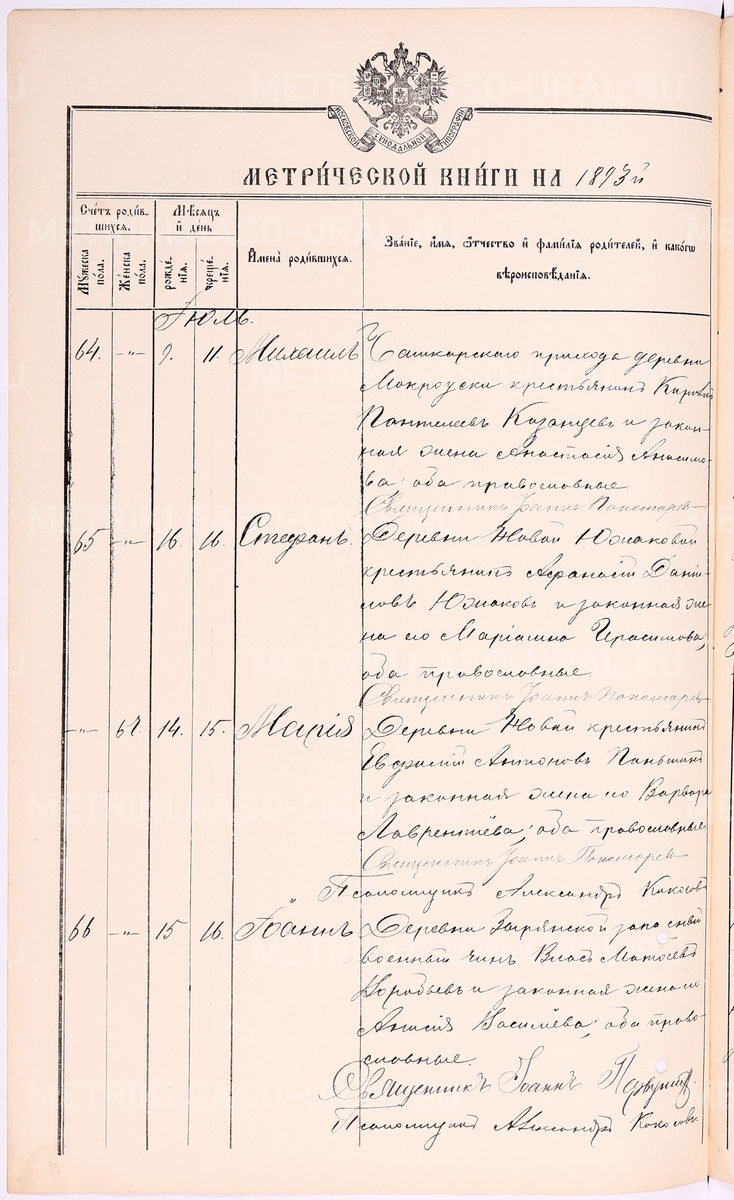 МОСКОВСКОЙ СѴНОДАЛЬНОЙ ТИПОГРАФІИ
МЕТРИ́ЧЕСКОЙ КНИ́ГИ НА 1893й
Сче́тъ роди́в-
шихся.
Мꙋ́жеска по́ла.
Же́нска по́ла.
Мѣ́сяцъ
и҆ де́нь
рожде́нїя.
креще́нїя.
И҆мена̀ роди́вшихся.
Зва́нїе, и҆́мя, ѻ҆́тчество и҆ фами́лїя роди́телей, и҆ како́гѡ
вѣроисповѣ́данїя.
Іюль.
64. -"- 9. 11. Михаилъ Чашкарскаго прихода деревни
Мокроуски крестьянинъ
Пантелеевъ Казанцевъ и закон-
ная жена Анастасія Анисимо-
ва; оба православные.
Священникъ Іоаннъ Пономаревъ
65 -"- 16. 16. Стефанъ. Деревни Новой Южаковой
крестьянинъ Афанасій Дани-
ловъ Южаковъ и законная же-
на его Маріамна Герасимова;
оба православные.
Священникъ Іоаннъ Пономаревъ
-"- 67. 14. 15. Марія Деревни Новой крестьянинъ
Евфимій Антоновъ Паньшинъ
и законная жена его Варвара
Лаврентіева; оба православные.
Священникъ Іоаннъ Пономаревъ
Псаломщикъ Александръ Кокосовъ
66 -"- 15 16. Іоаннъ Деревни Зырянской запасный
военный чинъ Власъ Матѳеевъ
Воробьевъ и законная жена его
Анисія Васильева; оба право-
славные.
Священникъ Іоаннъ
Псаломщикъ Александръ Кокосовъ.